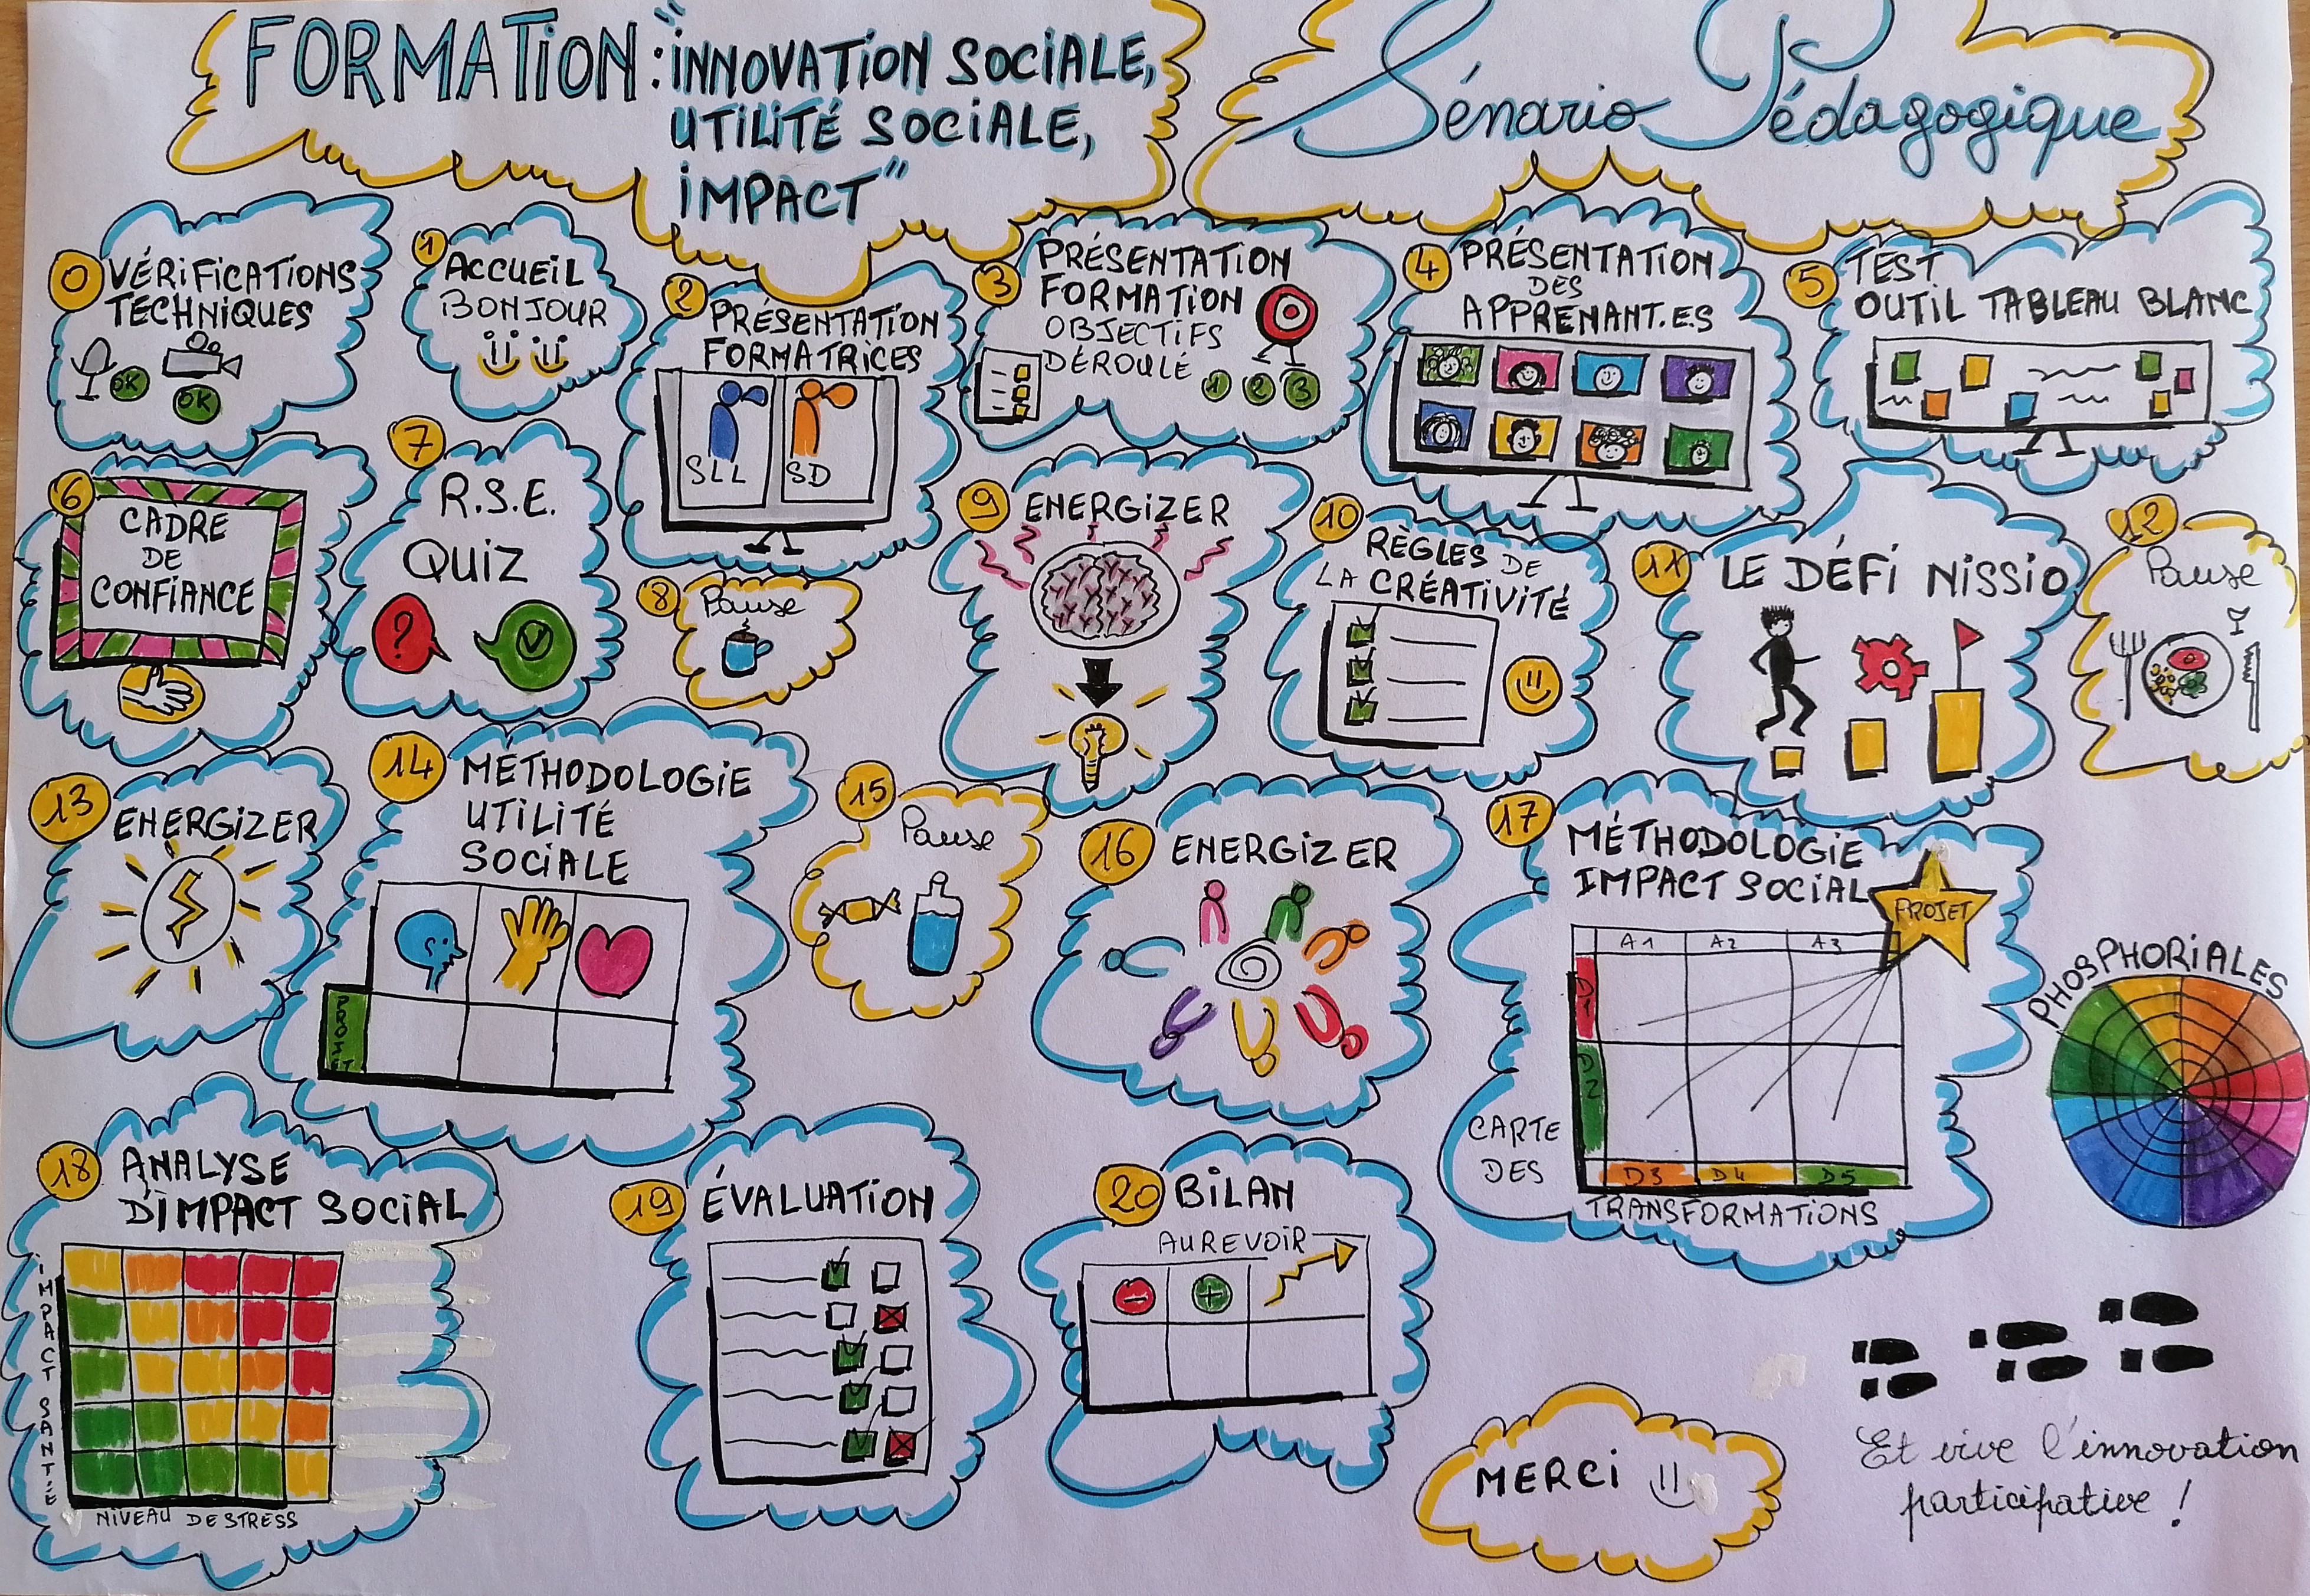 FORMATION : "INNOVATION SOCIALE,
UTILITÉ SOCIALE,
IMPACT"
Sénario Pédagogique
0 VÉRIFICATIONS
TECHNIQUES
OK
OK
1 ACCUEIL
BONJOUR
2 PRÉSENTATION
FORMATRICES
SLL
SD
3 PRÉSENTATION
FORMATION
OBJECTIFS
DÉROULÉ
1 2 3
4 PRÉSENTATION
DES
APPRENANT.E.S
5 TEST
OUTIL TABLEAU BLANC
6 CADRE
DE
CONFIANCE
7 R.S.E.
QUIZ
?
8 Pause
9 ENERGIZER
10 RÈGLES DE
LA CRÉATIVITÉ
11 LE DÉFI NISSIO
12 Pause
13 ENERGIZER
14 METHODOLOGIE
UTILITÉ
SOCIALE
PROJET
15 Pause
16 ENERGIZER
17 MÉTHODOLOGIE
IMPACT SOCIAL
PROJET
A1 A2 A3
D1
D2
D3 D4 D5
CARTE
DES
TRANSFORMATIONS
PHOSPHORIALES
18 ANALYSE
D'IMPACT SOCIAL
IMPACT SANTÉ
NIVEAU DE STRESS
19 ÉVALUATION
20 BILAN
AUREVOIR
- +
MERCI
Et vive l'innovation
participative !